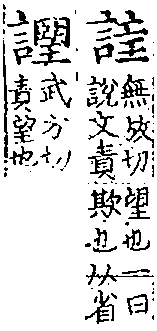 無放切望也一曰
說文責欺也从省
武方切
責望也